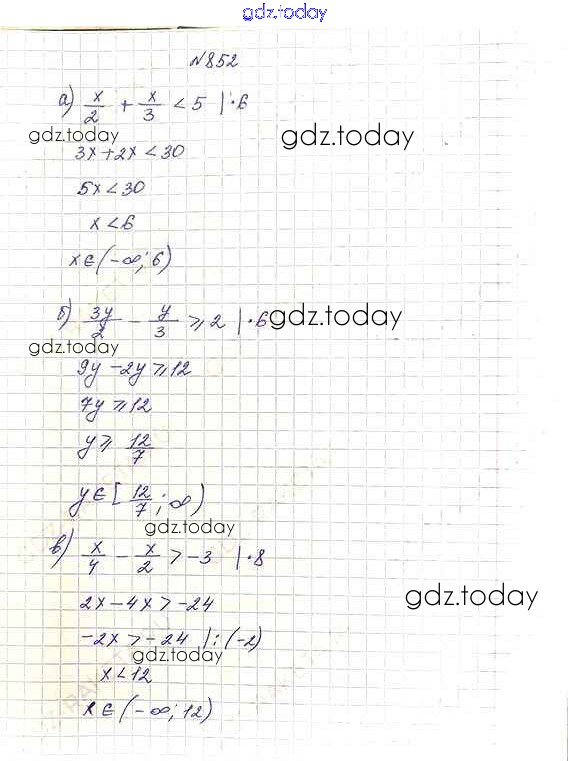 gdz.today
N852
а) x/2 + x/3 < 5 |·6
gdz.today gdz.today
3x+2x<30
5x<30
x<6
x∈(-∞;6)
б) 3y/2 - y/3 ⩾ 2 |·6 gdz.today
gdz.today
9y-2y⩾12
7y⩾12
y⩾ 12/7
y∈[12/7;∞)
gdz.today
в) x/4 - x/2 > -3 |·8
2x-4x>-24 gdz.today
-2x>-24 |:(-2)
gdz.today
x<12
x∈(-∞;12)